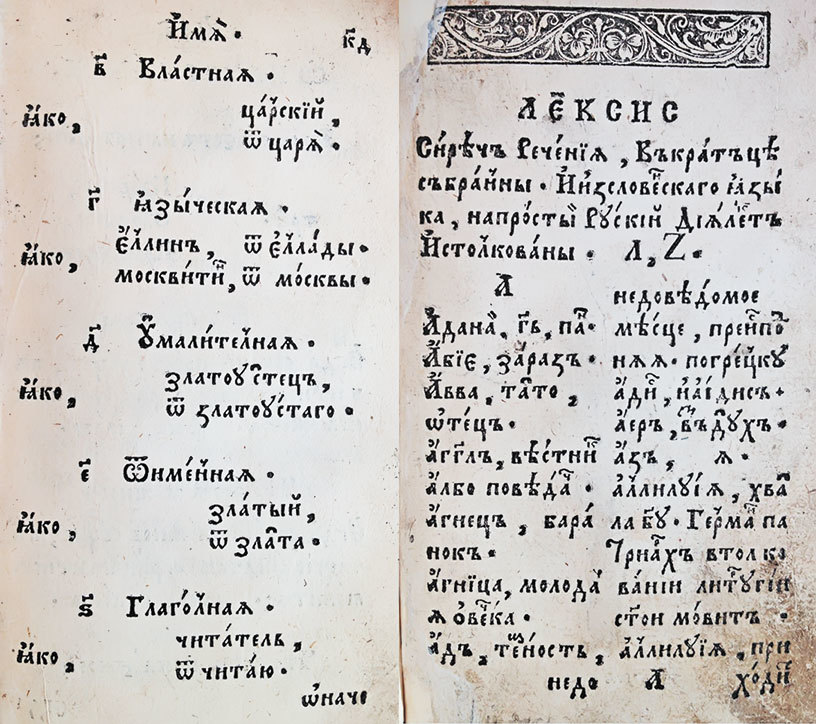 И҆́мѧ̀.
к҃д
в҃ Вла́стнаѧ.
ꙗ҆́ко,
ца́рскїй,
ѿ царѧ̀.
г҃ ꙗ҆зы́ческаѧ.
ꙗ҆́ко,
є҆́ллинъ, ѿ є҆лла́ды.
москви́тиⷩ҇, ѿ мо́сквы.
д҃ Оу҆мали́телⸯнаѧ.
ꙗ҆́ко,
златоꙋ́стецъ,
ѿ златоꙋ́стаго.
є҃ Ѿиме́нⸯнаѧ.
ꙗ҆́ко,
зла́тый,
ѿ зла́та.
ѕ҃ Глаго́лⸯнаѧ.
ꙗ҆́ко,
чита́тель,
ѿ чита́ю.
ѡ҆наче
ЛЕѮИС
Си́рѣчъ Рече́нїѧ, Въкра́тъцѣ
събра́нⸯны. И҆изслове́нⸯскаго ꙗ҆зы́
ка, напросты́й Рꙋ́скїй Дїѧле́ⷦ҇тъ
И҆сто́лкова́ны. А, Z.
А
А҆дана̀, гⷭ҇ь, па́ⷩ҇.
А҆́бїє, за́разъ.
А҆́вва, та́то,
ѡ҆те́цъ.
а҆́гг҃лъ, вѣ́стниⷦ҇
а҆́лбо повѣ́даⷱ҇.
а҆́гнецъ, бара́
нокъ.
а҆́гнїца, молода́
ѧ ѻ҆ве́чⸯка.
а҆́дъ, те́мⸯность,
недо
недовѣ́домое
мѣ́сце, преи҆спо́ⷣ
нѧѧ. погре́цкꙋ
а҆́диⷭ҇, и҆а҆и́дисъ.
а҆́еръ, въ́здꙋхъ.
а҆́зъ, ѧ.
а҆ллилꙋ́їѧ, хва
ла бꙋ. Ге́рмаⷩ҇ па
трїа́рⷯъ втолко
ва́нїи литꙋргїи
стои҆ мо́витъ.
а҆ллилꙋ́їѧ, при
А
хо́диⷮ